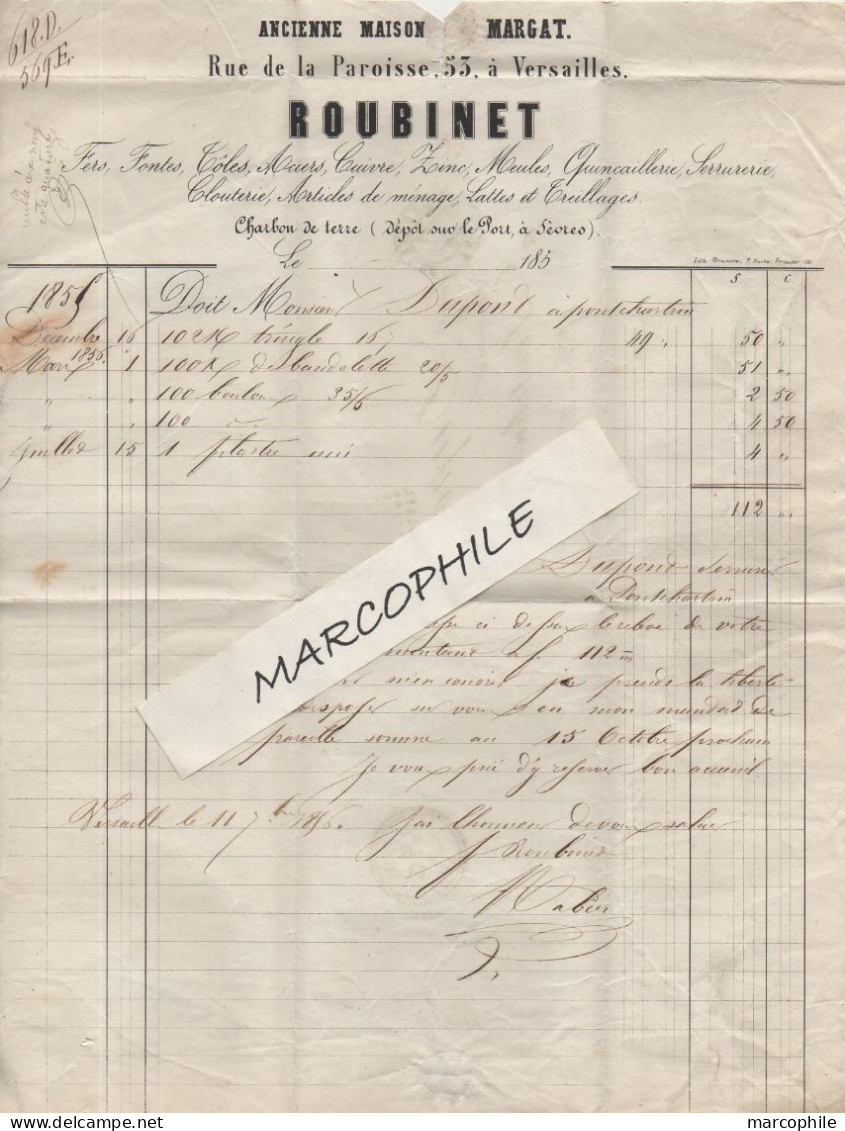 618.D.
569E.
ANCIENNE MAISON MARGAT.
Rue de la Paroisse, 53, à Versailles.
ROUBINET
Fers, Fontes, Tôles, Aciers, Cuivre, Zinc, Meules, Quincaillerie, Serrurerie,
Clouterie, Articles de ménage, Lattes et Treillages.
Charbon de terre (dépôt sur le Port, à Sèvres).
Le 185
F C
1855 Doit Monsieur Dupond a pontchartrin
Décembre 16 102 K tringle 16 49 " 50 "
Mars 1856. 1 100 K de bandelette 20/5 51 "
" " 100 boulons 35/6 2 50
" " 100 4 50
Juillet 15 1 4 "
112 "
Dupont Serrurier
a Pontchartrin
ci dessous le relevé de votre
montant a f. 112
je prends la liberté
disposer sur vous en mon mandat de
pareille somme au 15 Octobre prochain
Je vous prie d'y reserver bon accueil.
Versailles le 11 7bre 1856. J'ai l'honneur de vous saluer
Roubinet
MARCOPHILE
marcophile